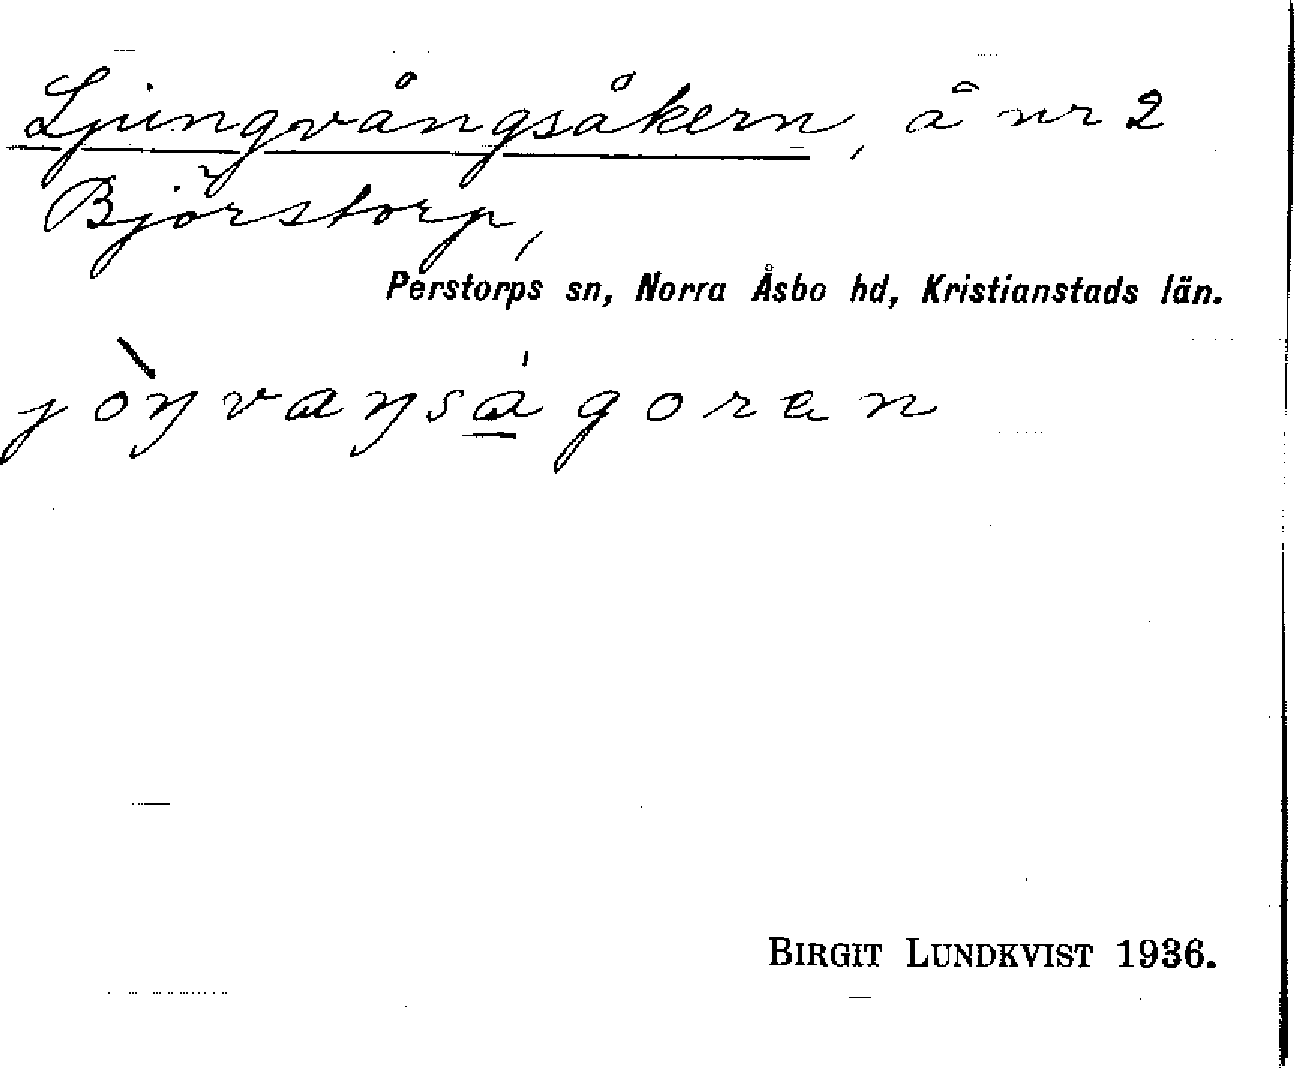 Ljungvångsåkern, å nr 2
Björstorp,
Perstorps sn, Norra Åsbo hd, Kristianstads län.
jòŋvaŋsá̱goran
BIRGIT LUNDKVIST 1936.